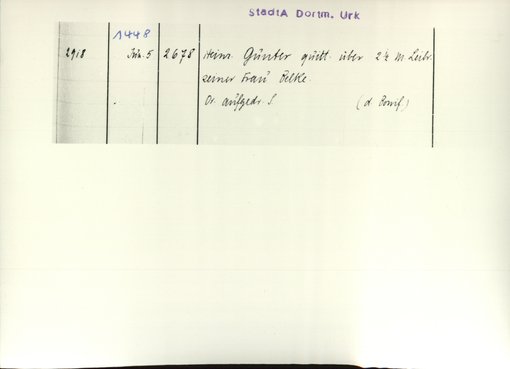 StadtA Dortm. Urk
1448
2918 Jun. 5 2678 Heinr. Günter quitt. über 2½ M Leibr.
seiner Frau Pelke.
Or. aufgedr. S. (d. Bonif.)